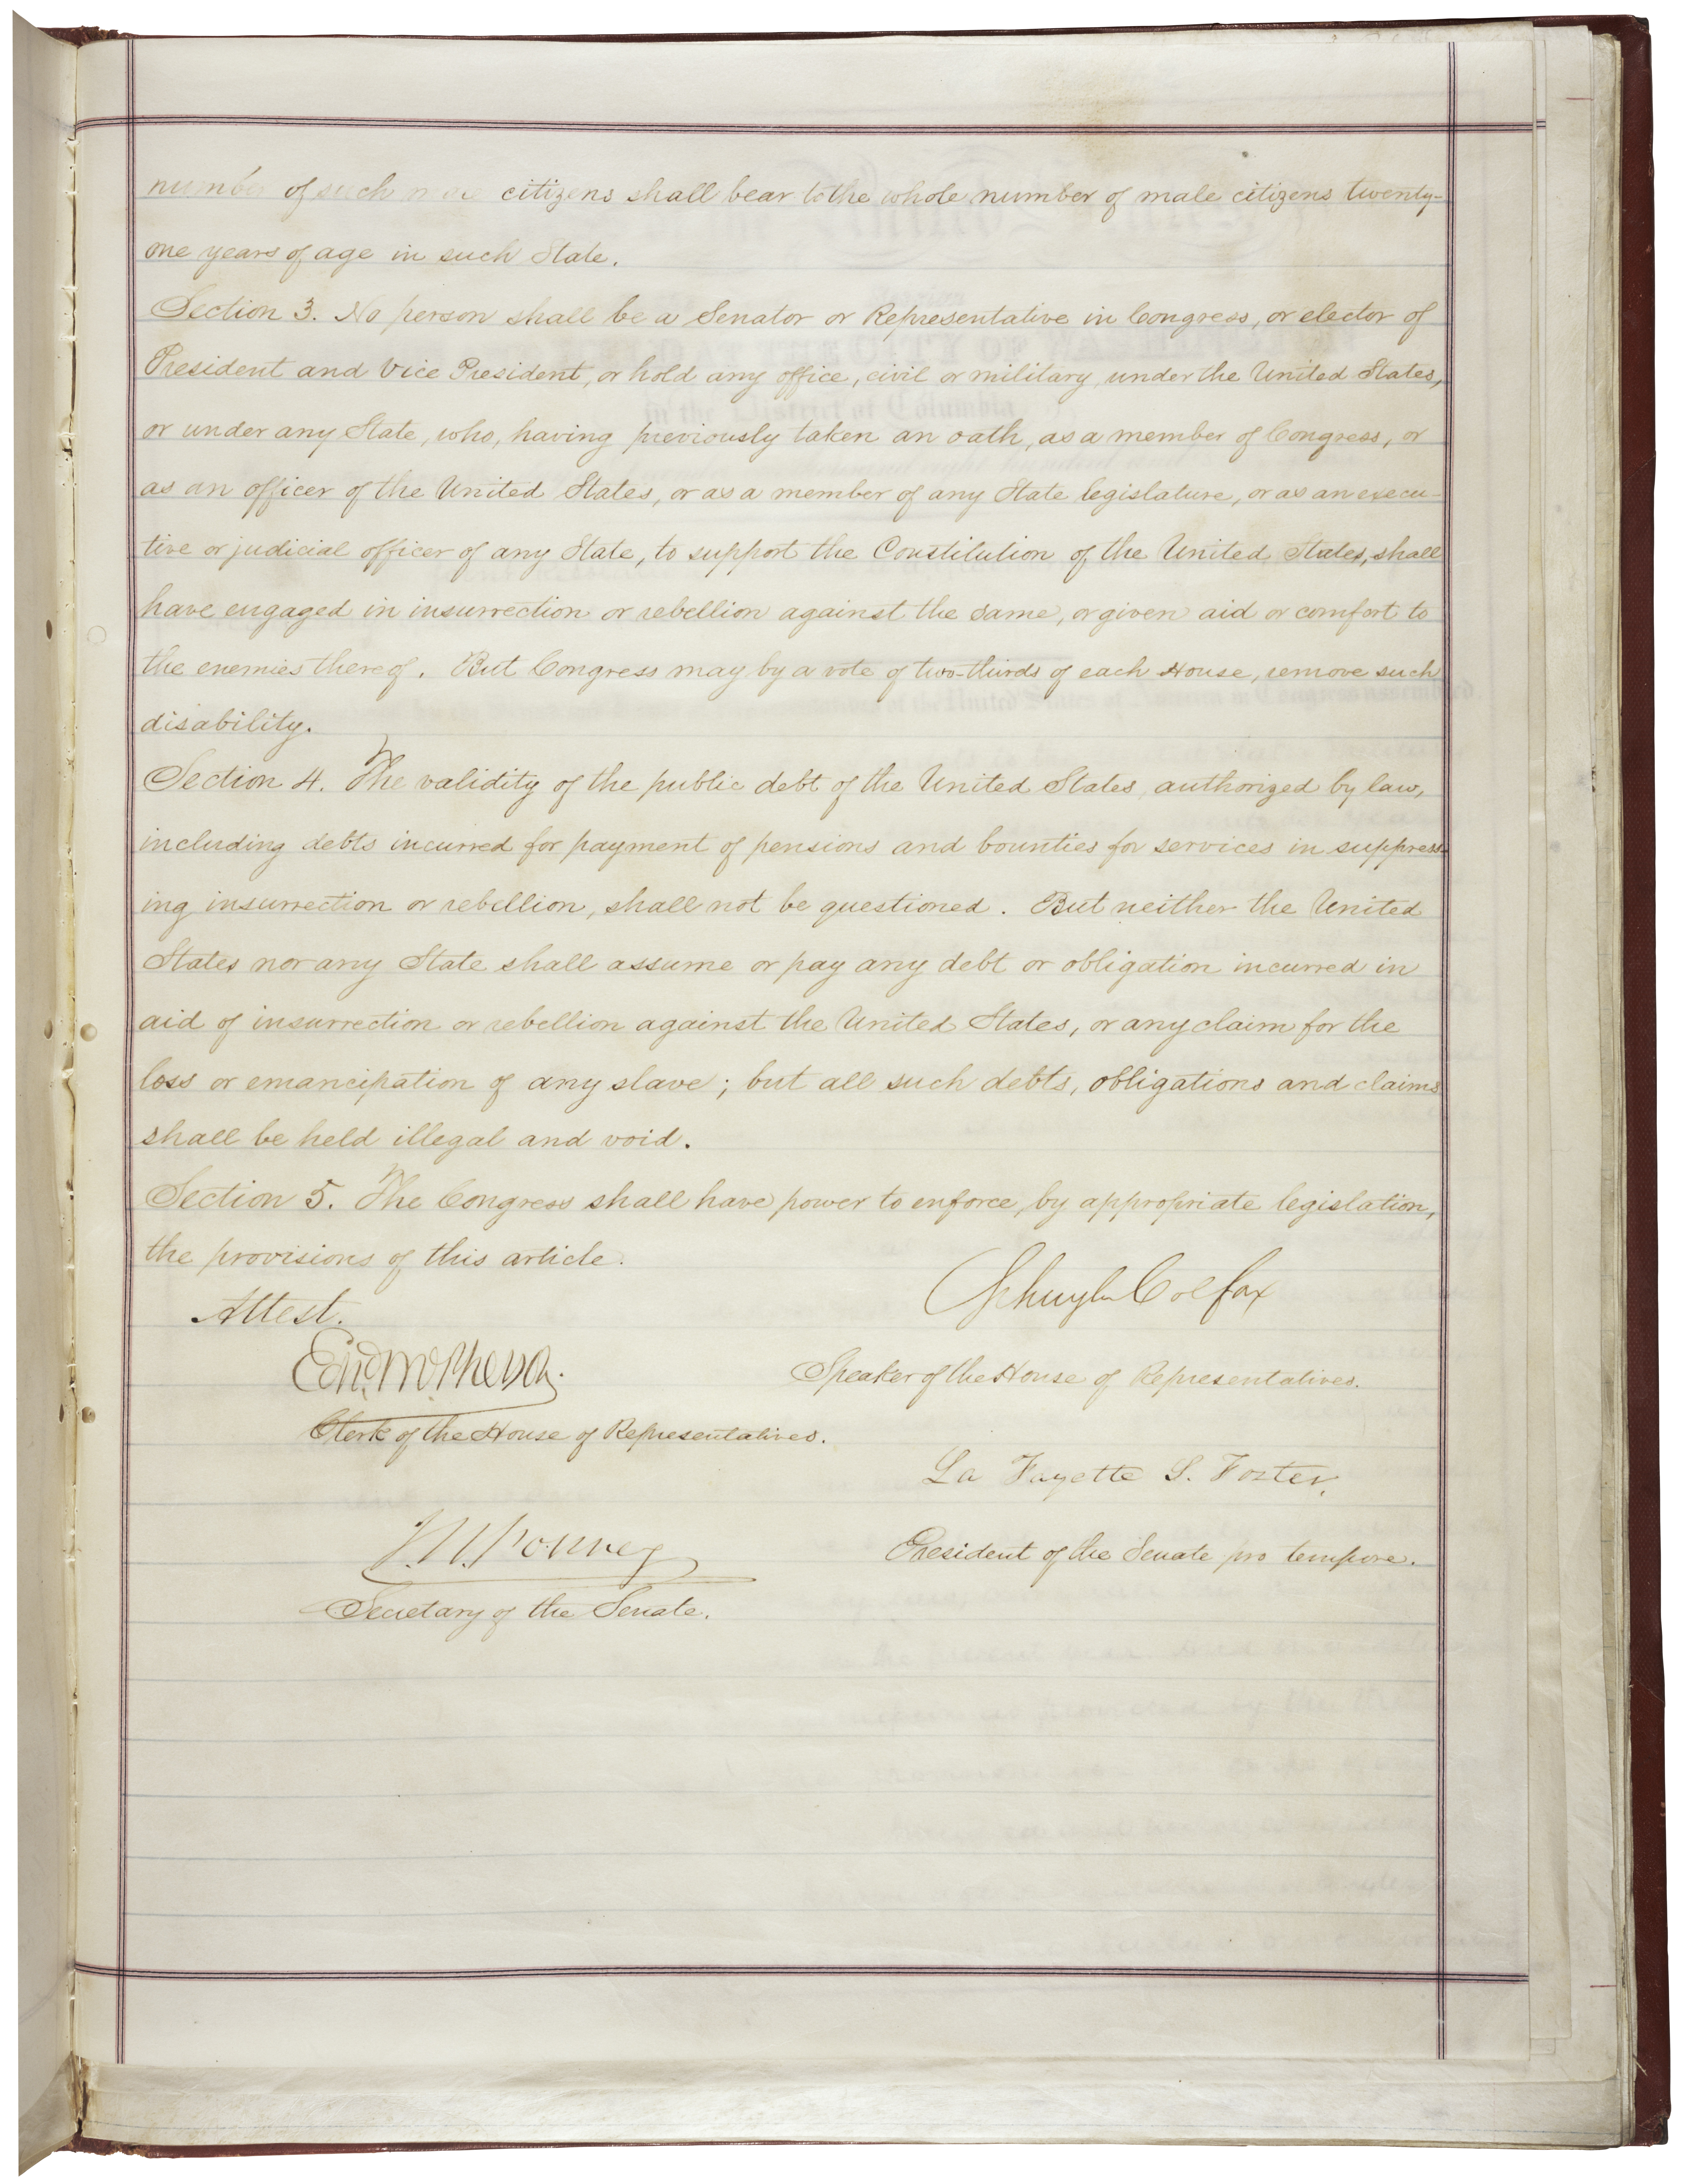 number of such male citizens shall bear to the whole number of male citizens twenty-
one years of age in such State.
Section 3. No person shall be a Senator or Representative in Congress, or elector of
President and Vice President, or hold any office, civil or military, under the United States,
or under any State, who, having previously taken an oath, as a member of Congress, or
as an officer of the United States, or as a member of any State legislature, or as an execu-
tive or judicial officer of any State, to support the Constitution of the United States, shall
have engaged in insurrection or rebellion against the same, or given aid or comfort to
the enemies thereof. But Congress may by a vote of two-thirds of each House, remove such
disability.
Section 4. The validity of the public debt of the United States, authorized by law,
including debts incurred for payment of pensions and bounties for services in suppress-
ing insurrection or rebellion, shall not be questioned. But neither the United
States nor any State shall assume or pay any debt or obligation incurred in
aid of insurrection or rebellion against the United States, or any claim for the
loss or emancipation of any slave; but all such debts, obligations and claims
shall be held illegal and void.
Section 5. The Congress shall have power to enforce, by appropriate legislation,
the provisions of this article.
Schuyler Colfax
Attest.
Edwd. McPherson.
Speaker of the House of Representatives.
Clerk of the House of Representatives.
La Fayette S. Foster,
J. W. Forney
President of the Senate pro tempore.
Secretary of the Senate.